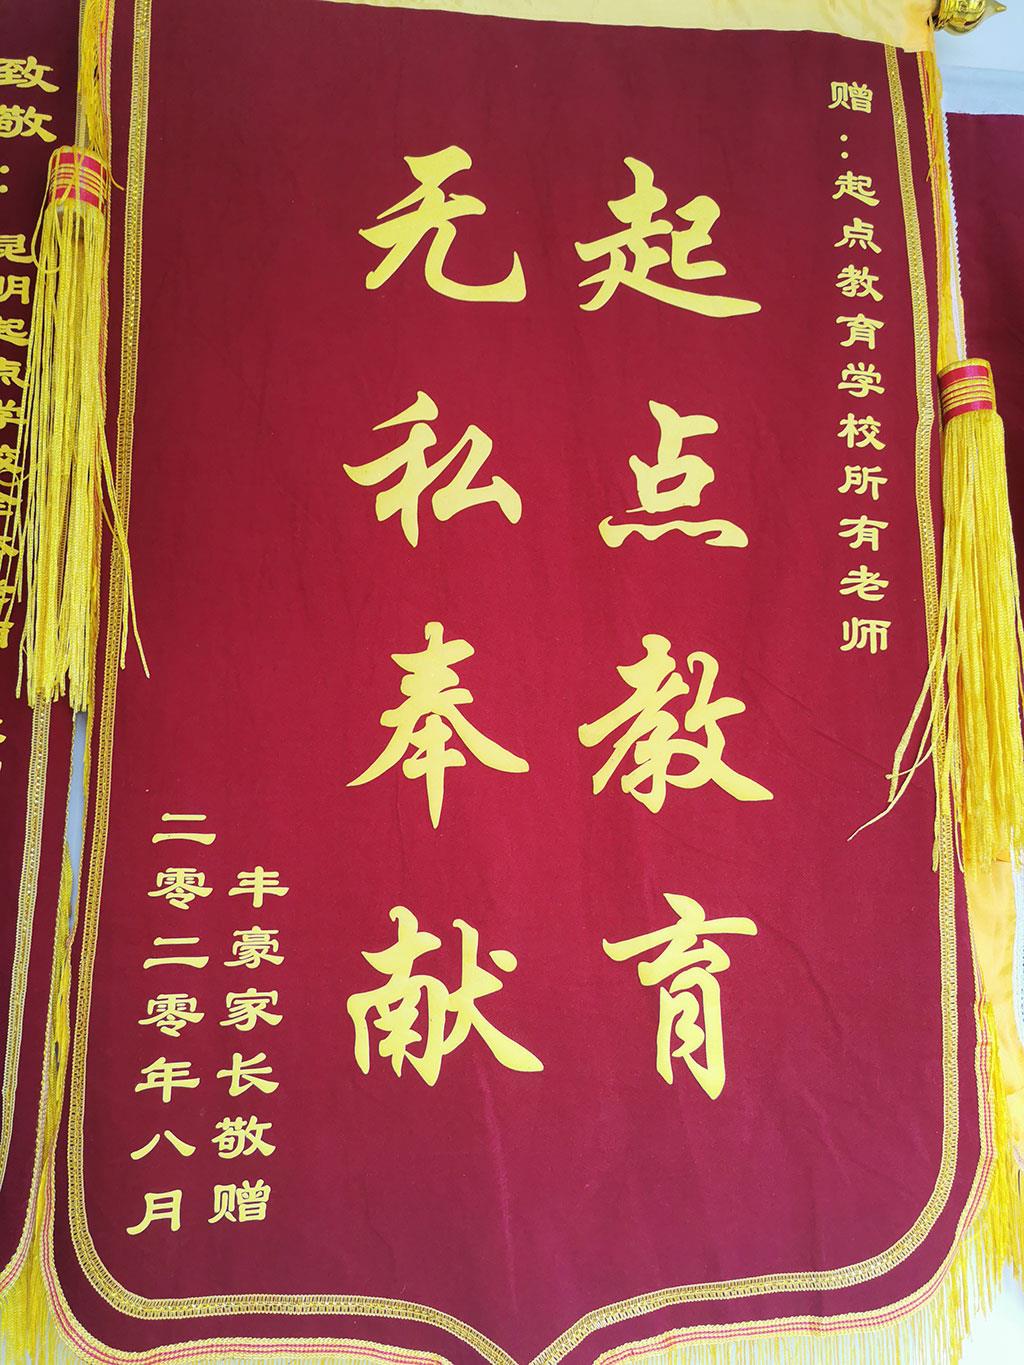 赠：起点教育学校所有老师
起点教育
无私奉献
丰豪家长敬赠
二零二零年八月
致敬：昆明起点学校